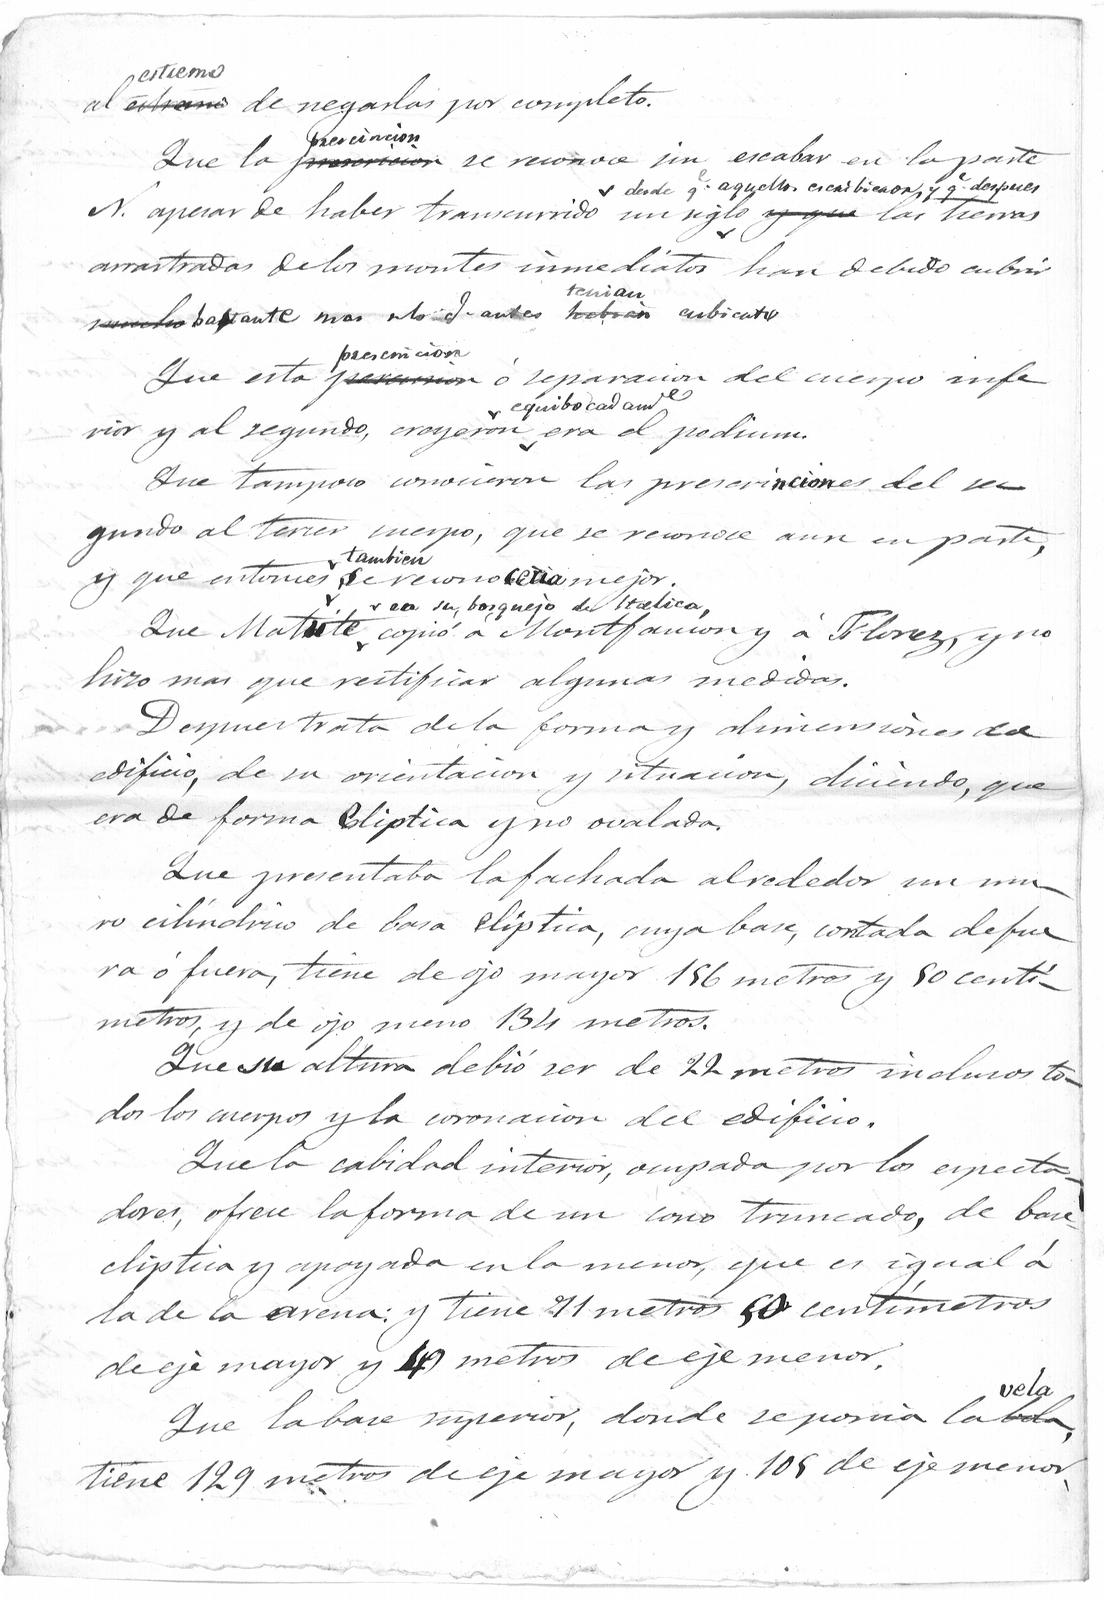 estremo
al estremo de negarlas por completo.
precincion
Que la precincion se reconoce sin escabar en la parte
desde q.e aquellos escribieron, y q.e despues
N. apesar de haber transcurrido un siglo y que las tierras
arrastradas de los montes inmediatos han debido cubrir
tenian
mucho bastante mas de lo q. antes habian cubierto
presincion
Que esta ó separacion del cuerpo infe
equibocadam.e
rior y al segundo, creyeron era el podium.
Que tampoco conocieron las presinciones del se
gundo al tercer cuerpo, que se reconoce aun en parte,
tambien
y que entonces se reconoceria mejor.
en su bosquejo de Italica,
Que Matute copió á Montfaucon y á Florez, y no
hizo mas que restificar algunas medidas.
Despues trata de la forma y dimensiones del
edificio, de su orientacion y situacion, diciendo, que
era de forma Eliptica y no ovalada.
Que presentaba la fachada alrededor un mu-
ro cilíndrico de basa Elíptica, cuya base, contada defue
ra ó fuera, tiene de ojo mayor 156 metros y 50 centí-
metros, y de ojo meno 134 metros.
Que su altura debió ser de 22 metros inclusos to-
dos los cuerpos y la coronacion del edificio.
Que la cabidad interior, ocupada por los especta-
dores, ofrece la forma de un cono truncado, de base
eliptica y apoyada en la menor, que es igual á
la de la arena: y tiene 71 metros 50 centímetros
de eje mayor y 49 metros de eje menor.
vela
Que la base superior, donde se ponia la bela,
tiene 129 metros de eje mayor y 105 de eje menor,